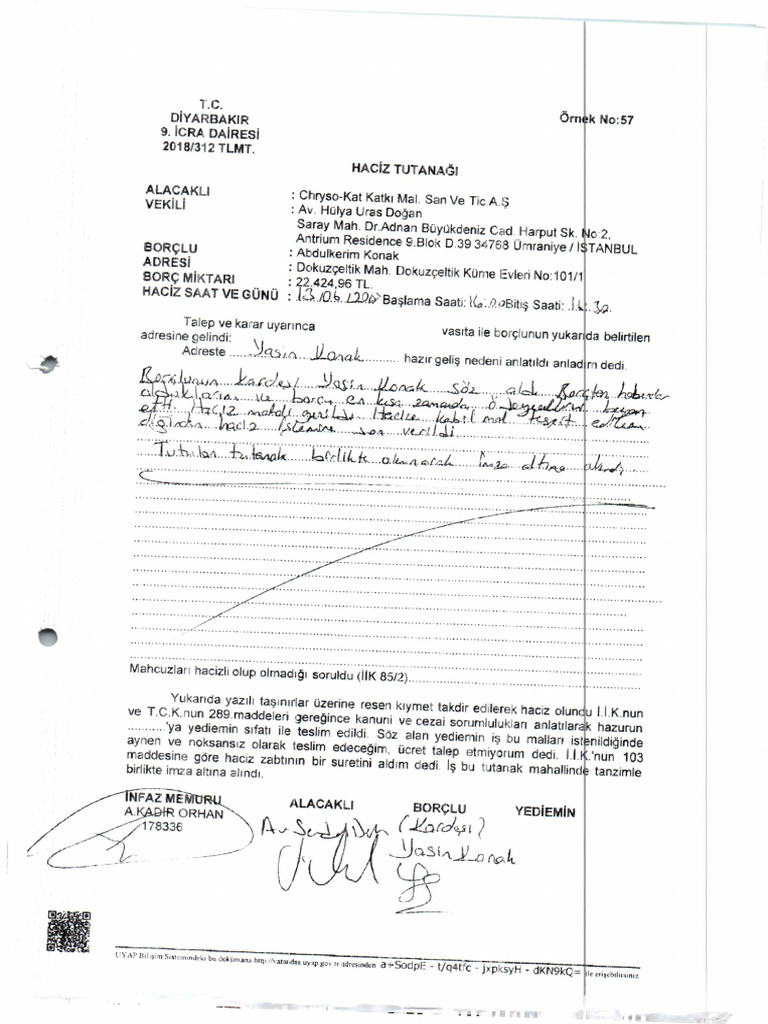 T.C.
DİYARBAKIR
9. İCRA DAİRESİ
2018/312 TLMT.
Örnek No:57
HACİZ TUTANAĞI
ALACAKLI : Chryso-Kat Katkı Mal. San Ve Tic A.Ş
VEKİLİ : Av. Hülya Uras Doğan
Saray Mah. Dr.Adnan Büyükdeniz Cad. Harput Sk. No:2,
Antrium Residence 9.Blok D.39 34768 Ümraniye / İSTANBUL
BORÇLU : Abdulkerim Konak
ADRESİ : Dokuzçeltik Mah. Dokuzçeltik Küme Evleri No:101/1
BORÇ MİKTARI : 22.424,96 TL.
HACİZ SAAT VE GÜNÜ : 13.06.120 Başlama Saati: 16.00 Bitiş Saati: 16.30.
Talep ve karar uyarınca vasıta ile borçlunun yukarıda belirtilen
adresine gelindi:
Adreste ...... Yasin Konak ............ hazır geliş nedeni anlatıldı anladım dedi.
Borçlunun kardeşi Yasin Konak söz aldı Borçtan haberdar
olduklarını ve borcu en kısa zamanda ödeyeceklerini beyan
etti Haciz mahalli gezildi Hacize kabil mal tespit edilme
diğinden haciz işlemine son verildi.
Tutulan tutanak birlikte okunarak imza altına alındı.
Mahcuzları hacizli olup olmadığı soruldu (İİK 85/2)
Yukarıda yazılı taşınırlar üzerine resen kıymet takdir edilerek haciz olundu İ.İ.K.nun
ve T.C.K.nun 289.maddeleri gereğince kanuni ve cezai sorumlulukları anlatılarak hazurun
...........'ya yediemin sıfatı ile teslim edildi. Söz alan yediemin iş bu malları istenildiğinde
aynen ve noksansız olarak teslim edeceğim, ücret talep etmiyorum dedi. İ.İ.K.'nun 103
maddesine göre haciz zabtının bir suretini aldım dedi. İş bu tutanak mahallinde tanzimle
birlikte imza altına alındı.
İNFAZ MEMURU ALACAKLI BORÇLU YEDİEMİN
A.KADİR ORHAN
178336
Av (Kardeşi)
Yasin Konak
UYAP Bilişim Sistemindeki bu dokümana http://vatandas.uyap.gov.tr adresinden a+SodpE - t/q4tfc - jxpksyH - dKN9kQ= ile erişebilirsiniz.